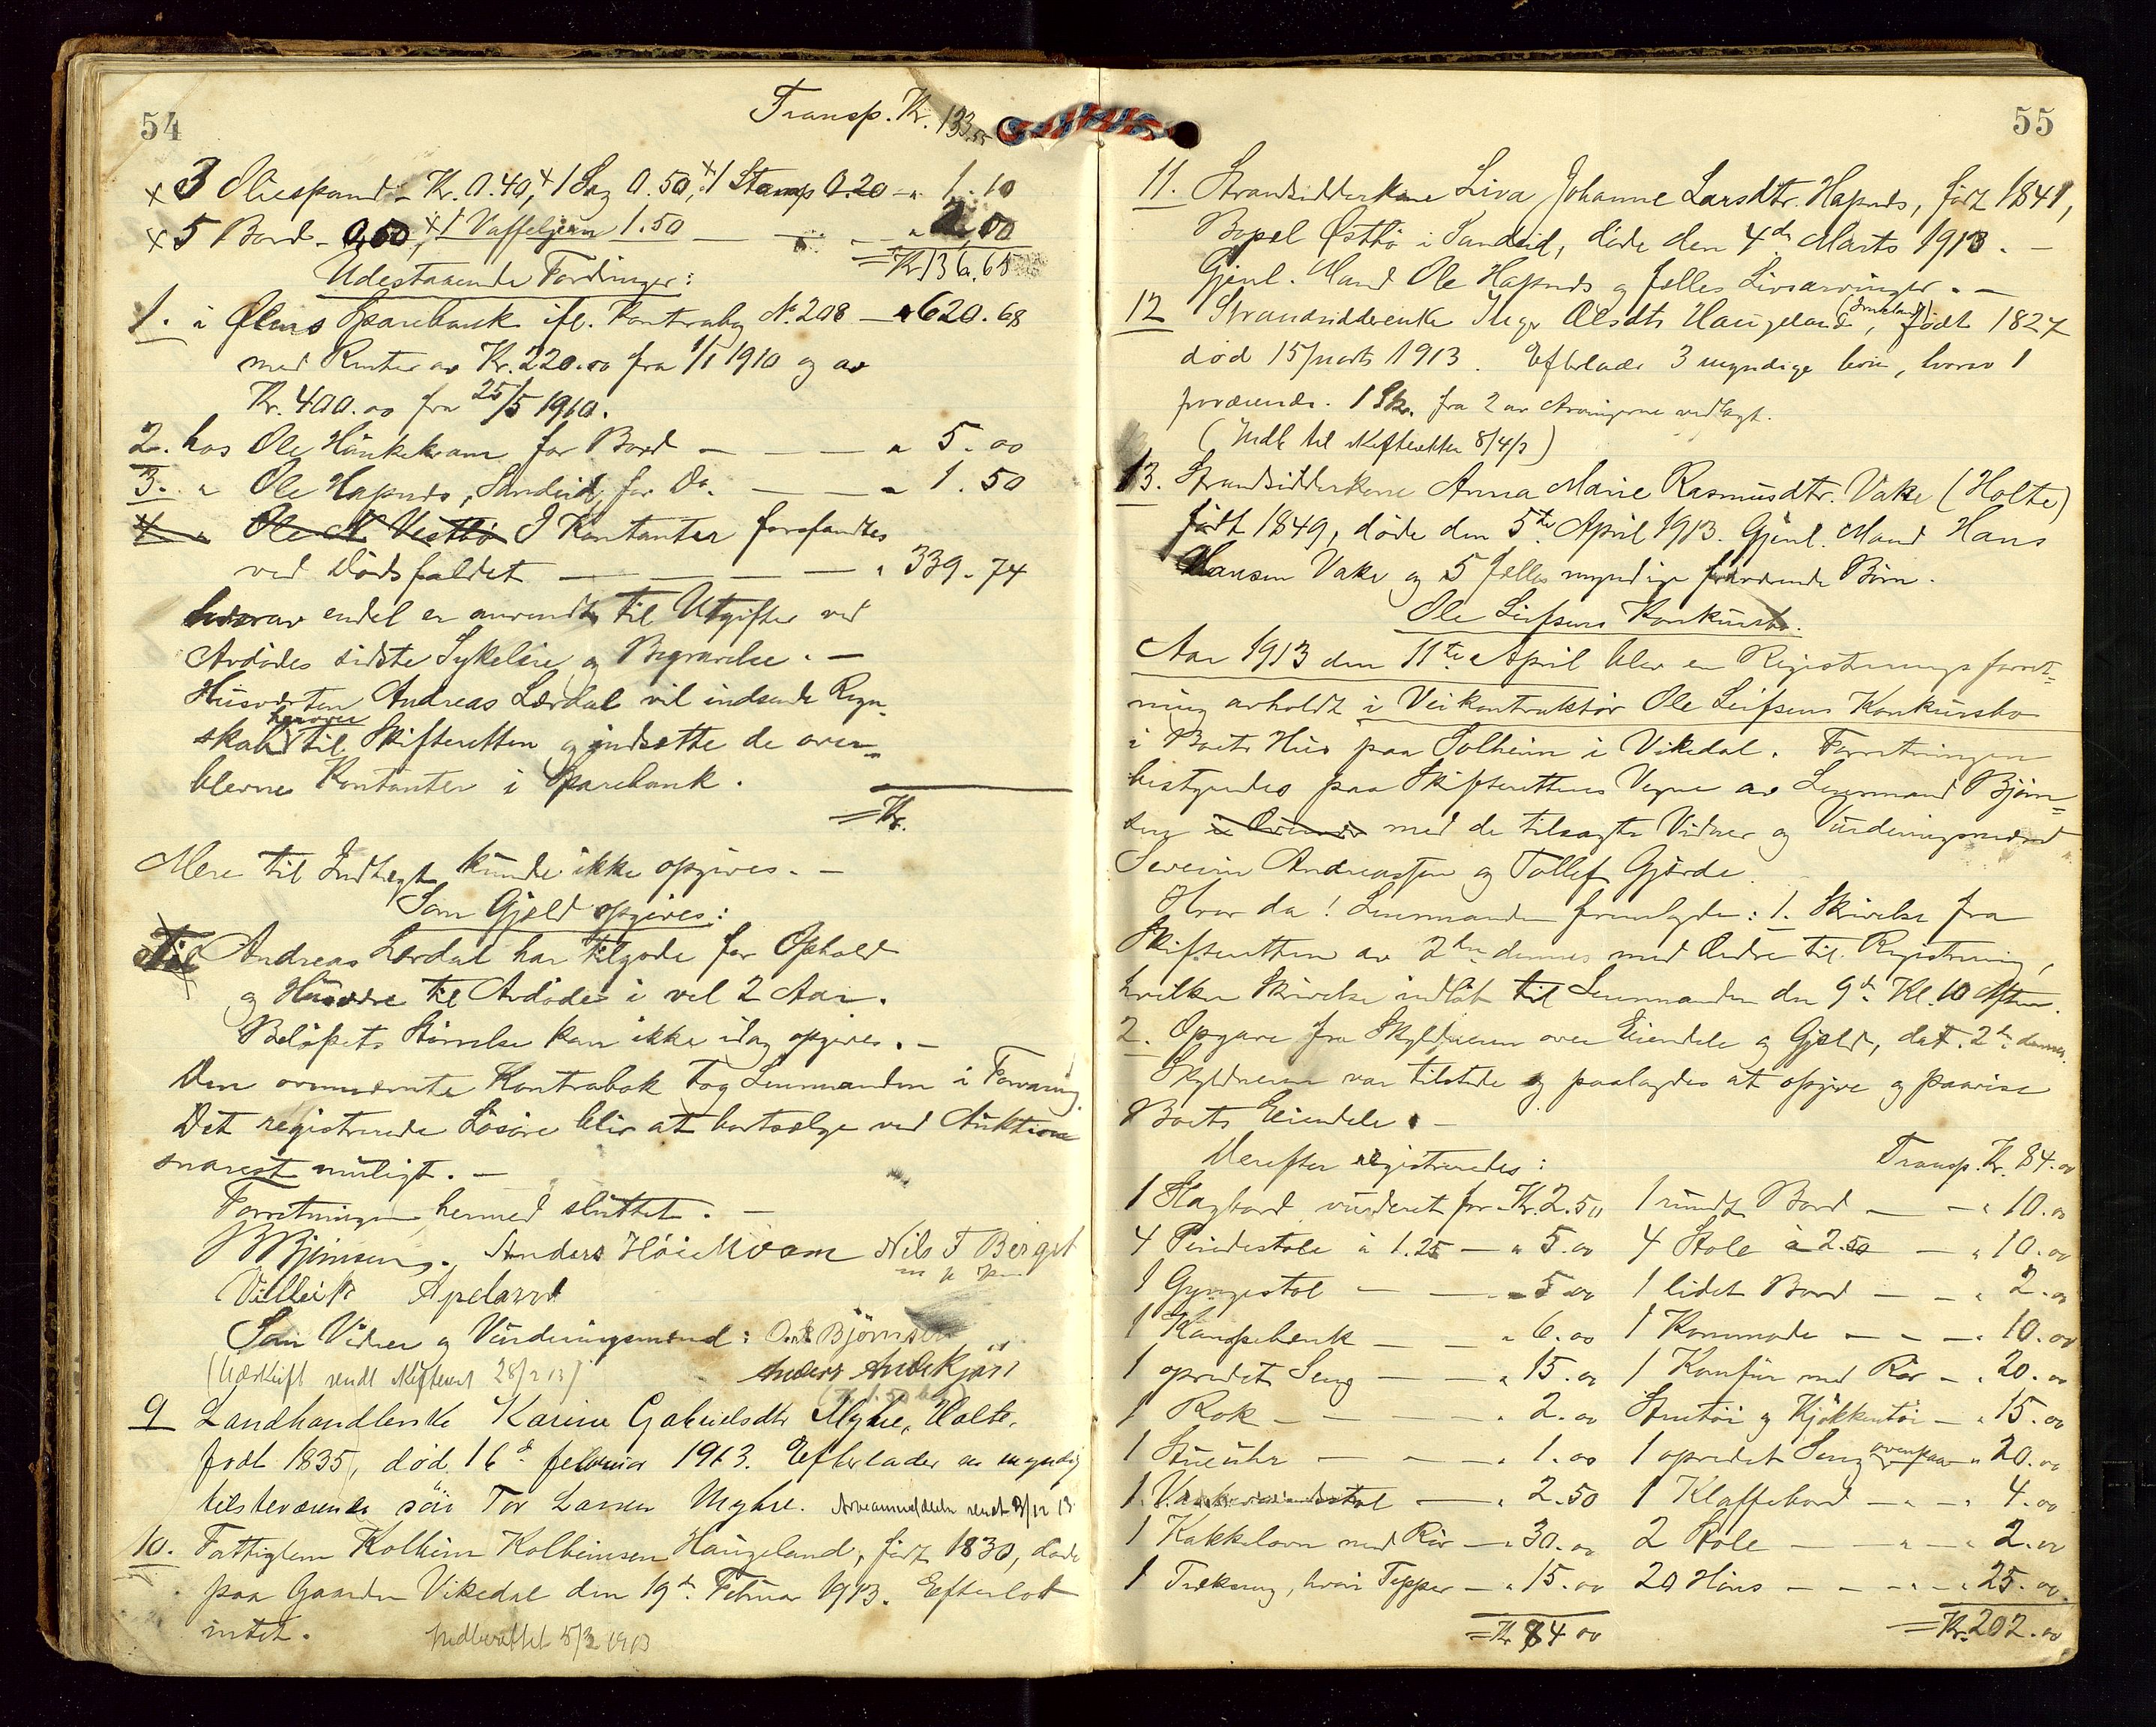 54
Transp. Kr. 133.55
x 3 Oliespand - Kr. 0.40, x 1 Sag 0.50, x 1 Stamp 0.20 - " 1.10
x 5 Bord - 0.50, x 1 Vaffeljern 1.50 — — — " 2.00
= Kr 136.65
Udestaaende Fordringer:
1. i Ølens Sparebank ifl. Kontrabog No. 208 — " 620.68
med Renter av Kr. 220.00 fra 1/1 1910 og av
Kr. 400.00 fra 25/5 1910.
2. hos Ole for Bord — — — " 5.00
3. " Ole Hapnes, Sandeid, for Do. — — — " 1.50
4. " Ole N Vestbø I Kontanter forefandtes
ved Dødsfaldet — — — — " 339.74
hvorav endel er anvendt til Utgifter ved
Avdødes sidste Sykeleie og Begravelse. —
Husværten Andreas Lerdal vil indsende Regn-
skab herover til Skifteretten og indsætte de over-
blevne Kontanter i Sparebank.
= Kr.
Mere til Indtægt kunde ikke opgives. —
Som Gjæld opgives:
Til Andreas Lerdal har tilgode for Ophold
og Husvære til Avdøde i vel 2 Aar.
Beløpets Størrelse kan ikke idag opgives. —
Den ovennævnte Kontrabok tog Lensmanden i Forvaring.
Det registrerede Løsøre blir at bortsælge ved Auktion
snarest muligt. —
Forretningen hermed sluttet. —
B Bjørnsen. Anders Høiekvam Nils T Berget
m p p
Villeik Apeland
Som Vidner og Vurderingsmænd: O. E. Bjørnsen
(Utskrift sendt Skifteret 28/2 13)
9 Landhandlerske Karine Gabrielsdtr Myhre, Holte,
født 1835, død 16de februar 1913. Efterlader en myndig
tilstedværende søn Tov Larsen Myhre.
10. Fattiglem Kolbein Kolbeinsen Haugeland, født 1830, døde
paa Gaarden Vikedal den 19de Februar 1913. Efterlot
intet. Indberettet 5/3 1913
55
11. Strandsidderkone Liva Johanne Larsdtr. Hapnes, født 1841,
Bopæl Østbø i Sandeid, døde den 4de Marts 1913. —
Gjenl. Mand Ole Hapnes og fælles Livsarvinger. —
12 Strandsidderenke Inger Olsdtr Haugeland, født 1827
død 15 marts 1913. Efterlader 3 myndige børn, hvorav 1
fraværende. 1 Skr. fra 2 av Arvingerne vedlagt.
(Indb til Skifteretten 8/4 13)
13. Strandsidderkone Anna Marie Rasmusdtr. Vake (Holte)
født 1849, døde den 5te April 1913. Gjenl. Mand Hans
Hansen Vake og 5 fælles myndige fraværende Børn.
Ole Leifsens Konkursbo.
Aar 1913 den 11te April blev en Registreringsforret-
ning avholdt i Veikontraktør Ole Leifsens Konkursbo
i Boets Hus paa Solheim i Vikedal. Forretningen
bestyredes paa Skifterettens Vegne av Lensmand Bjørn-
sen med de tilsagte Vidner og Vurderingsmænd
Severin Andreassen og Tollef Gjerde.
Hvor da! Lensmanden fremlagde: 1. Skrivelse fra
Skifteretten av 2den dennes med Ordre til Registrering,
hvilken Skrivelse indløb til Lensmanden den 9de Kl. 10 Aften.
2. Opgave fra Skyldneren over Eiendele og Gjæld, dat. 2den dennes.
Skyldneren var tilstede og paalagdes at opgive og paavise
Boets Eiendele. —
Derefter registreredes:
Transp. Kr. 84.00
1 Slagbord vurderet for Kr. 2.50 1 rundt Bord — — " 10.00
4 Pindestole à 1.25 — " 5.00 4 Stole à 2.50 — " 10.00
1 Gyngestol — — — " 5.00 1 lidet Bord — — " 2.00
1 Kanapebenk — — " 6.00 1 Kommode — — — " 10.00
1 opredt Seng — — " 15.00 1 Komfur med Rør — " 20.00
1 Rok — — — — " 2.00 Stentøi og Kjøkkentøi — " 15.00
1 Stueuhr — — — " 1.00 1 opredet Seng ovenpaa " 20.00
1 — " 2.50 1 Klaffebord — " — " 4.00
1 Kakkelovn med Rør — " 30.00 2 Stole — — " — " 2.00
1 Trækseng, hvori Tepper — " 15.00 20 Høns — — " — " 25.00
= Kr 84 00 = Kr. 202.00